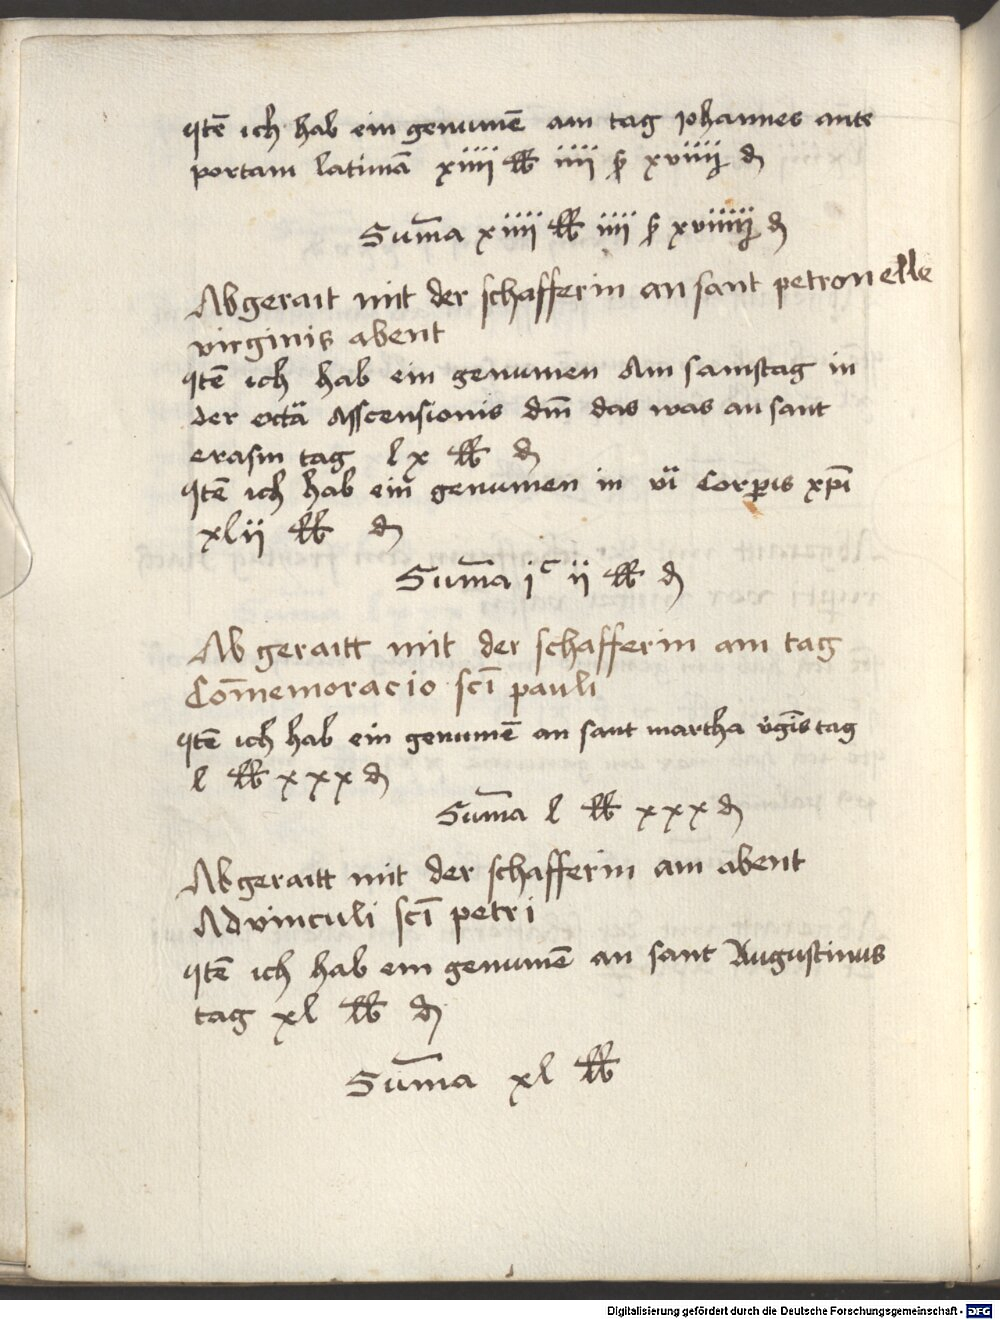 Itē ich hab ein genumē am tag Johannes ante
portam latinā xiiii lb iiii ß xviiij d
Sum̄a xiiii lb iiii ß xviiiij d
Abgerait mit der schafferin an sant petronelle
virginis abent
Itē ich hab ein genumen Am samstag in
der octā Asscensionis dm̄ das was an sant
erasm tag lx lb d
Itē ich hab ein genumen in vi Corpis xp̄i
xlii lb d
Sum̄a jᶜ ii lb d
Ab geraitt mit der schafferin am tag
Com̄emoracio sc̄i pauli
Itē ich hab ein genumē an sant martha v̄gīs tag
l lb xxx d
Sum̄a l lb xxx d
Abgeraitt mit der schafferin am abent
Advinculi sc̄i petri
Itē ich hab ein genumē an sant Augustinus
tag xl lb d
Sum̄a xl lb
Digitalisierung gefördert durch die Deutsche Forschungsgemeinschaft - DFG